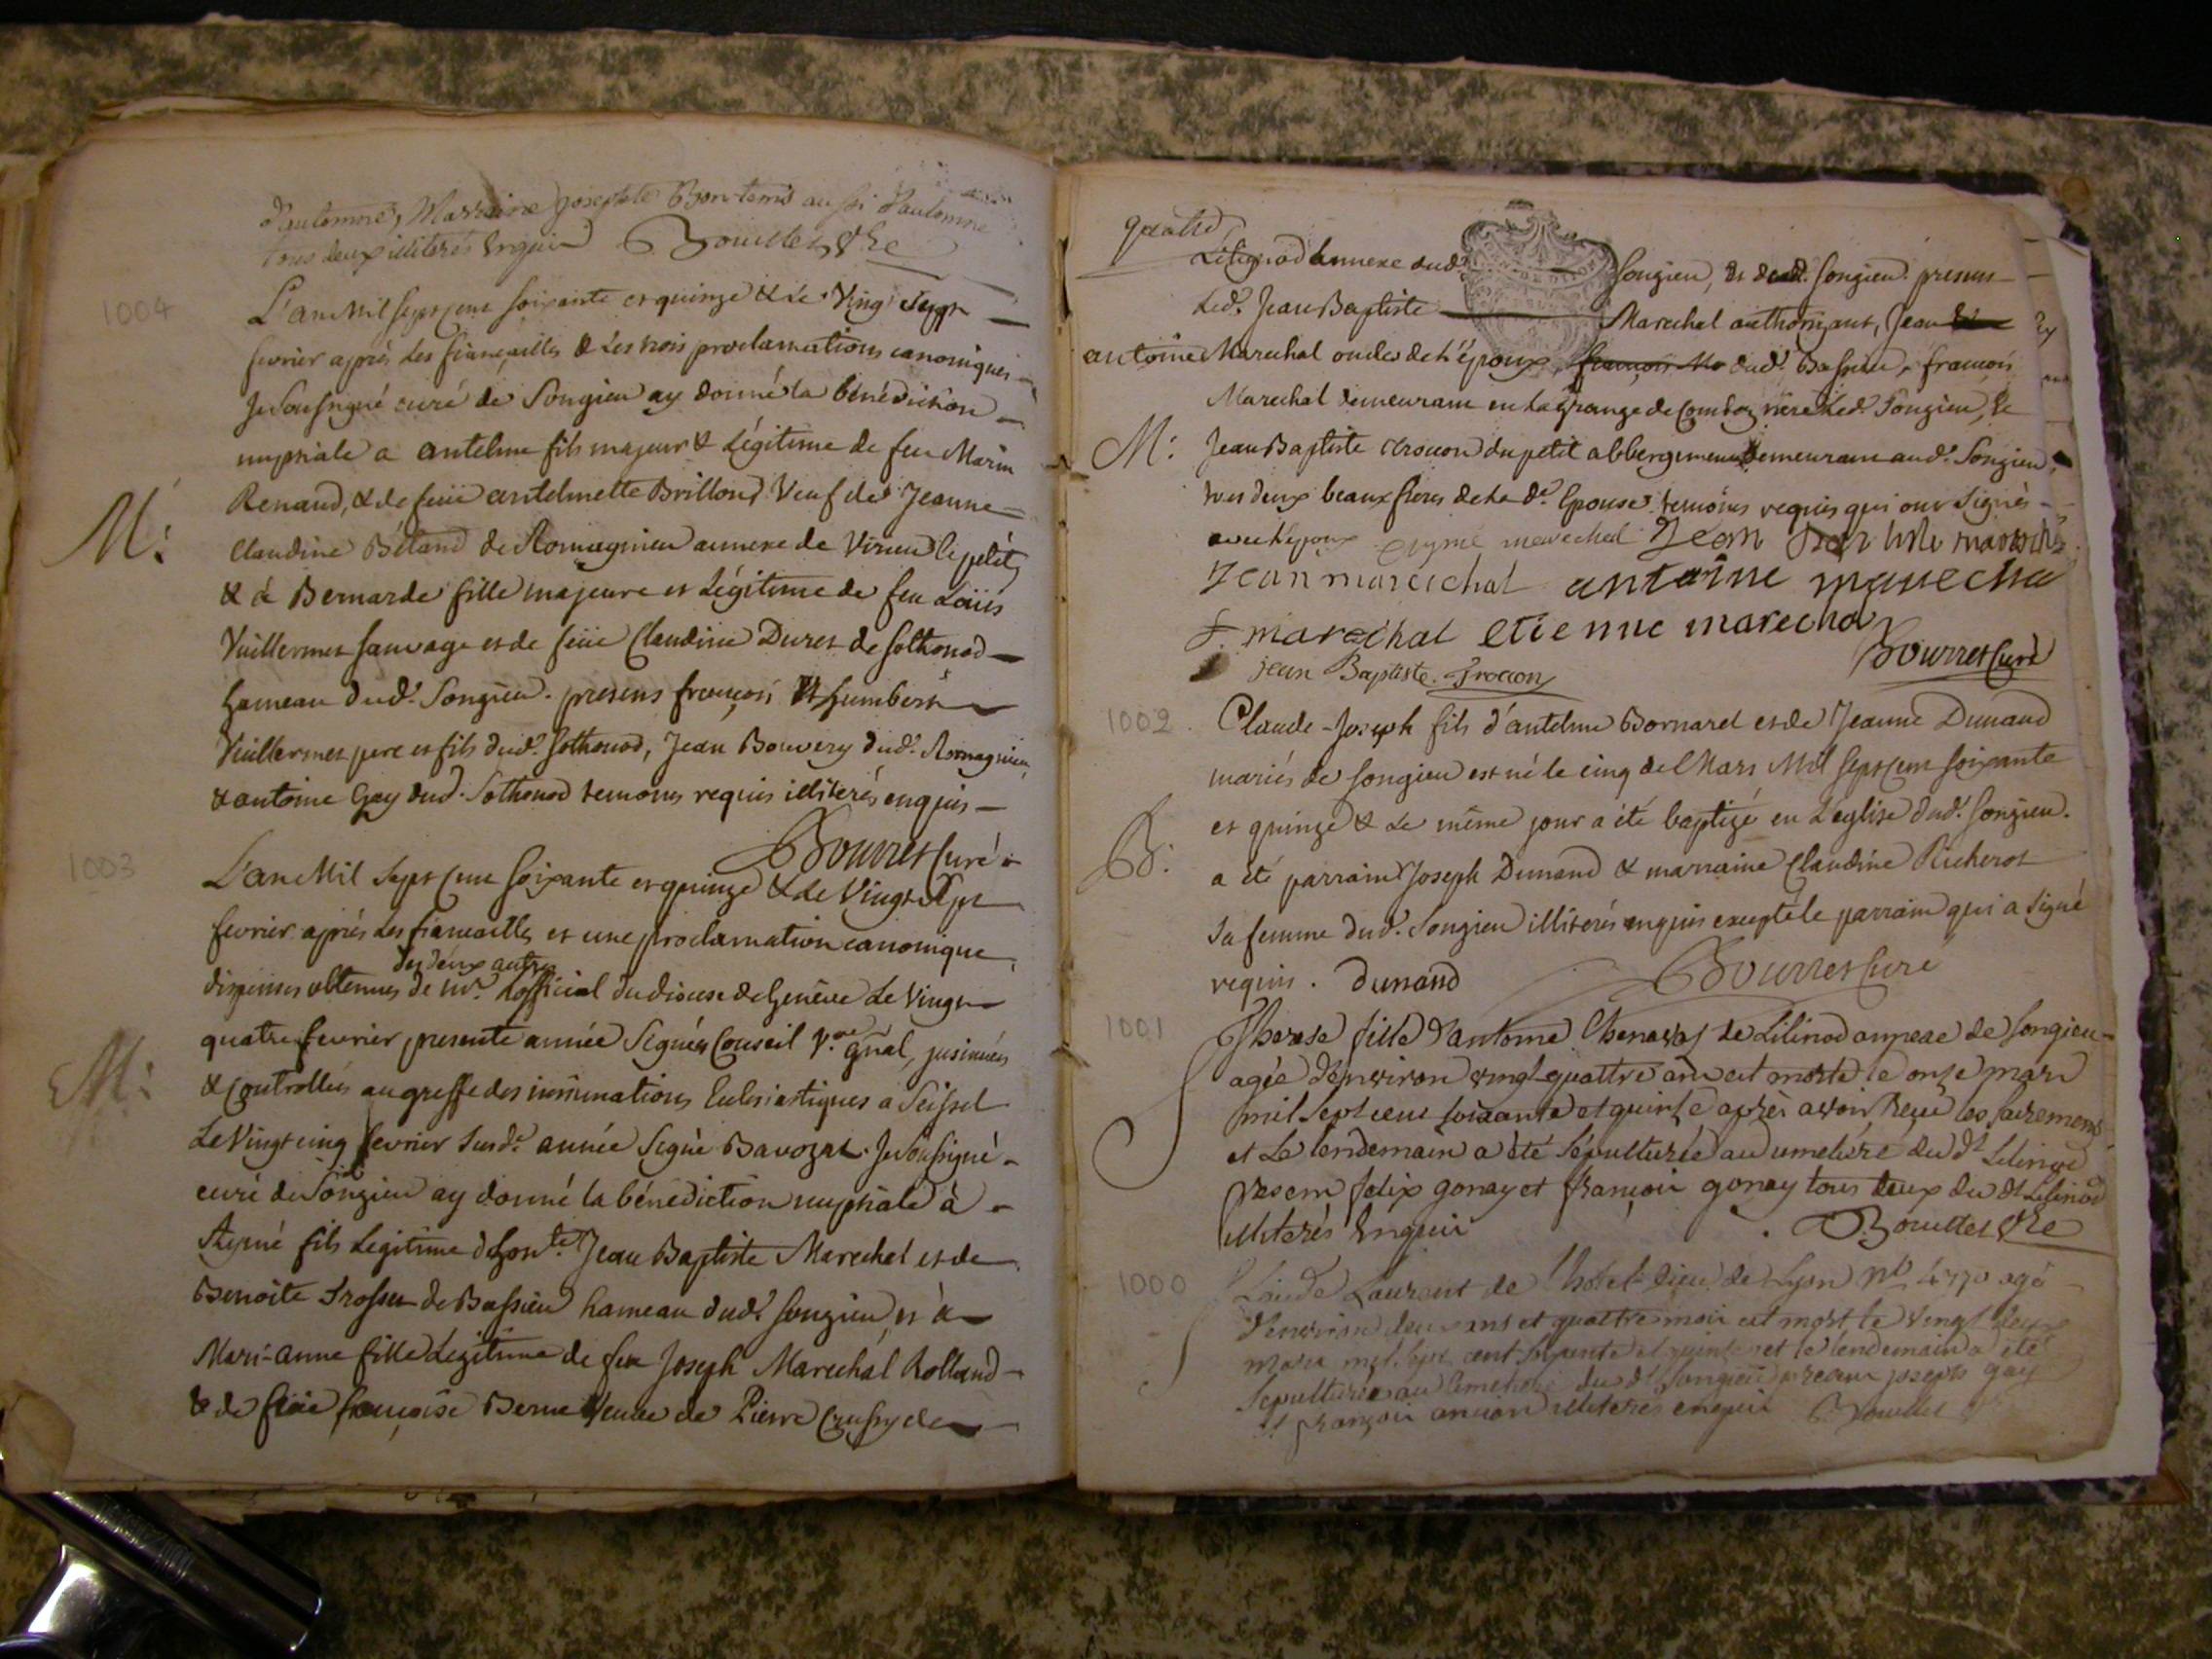 d'automne, Marraine josephte Bontems aussi d'automne
tous deux illiterés Enquis Bouillet Vre
1004
L'an Mil sept cent soixante et quinze & le Vingt Sept
fevrier après Les fiançailles & Les trois proclamations canoniques
Je Soussigné curé de Songieu ay donné la bénédiction
nuptiale a antelme fils majeur & Légitime de feu Marin
Renaud, & de feüe antelmette Brillond Veuf de Jeanne
M:
Claudine Bétand de Romagnieu annexe de Virieu le petit,
& à Bernarde fille majeure et Légitime de feu Loüis
Vuillermet Sauvage et de feüe Claudine Duret de Sothonod
hameau dud. Songieu. presens françois & humbert
Vuillermet pere et fils dud. Sothonod, Jean Bouvery dud. Romagnieu
& antoine Gay dud. Sothonod temoins requis illiterés enquis
Bourret Curé
1003
L'an Mil Sept Cent Soixante et quinze & le Vingt Sept
fevrier après Les fiancailles et une proclamation canonique,
des deux autres
dispenses obtenues de mr. Lofficial du diocese de Genève Le Vingt
quatre fevrier presente année Signées Conseil V. gnal, insinuées
M:
& Controllées au greffe des insinuations Ecclesiastiques a Seissel
Le Vingt cinq fevrier Susd. année Signé Bavozat. Je Soussigné
curé de Songieu ay donné la bénédiction nuptiale à
Aymé fils Legitime d'hon.te Jean Baptiste Marechal et de
Benoite Trosset de Bassieu hameau dud. Songieu, et à
Mari-anne fille Legitime de feu Joseph Marechal Rolland
& de feüe françoise Berne Veuve de Pierre Crussy de
quatre
Lilignod annexe dud. Songieu, et dud. Songieu. presens
Led. Jean Baptiste Marechal authorisant, Jean
antoine Marechal oncles de L'époux, françois Ma dud. Bassieu, françois
Marechal demeurant en La grange de Comboz riere Led. Songieu, &
M: Jean Baptiste Trocon du petit abbergement demeurant aud. Songieu,
tous deux beaux freres de La de. Epouse temoins requis qui ont Signés
avec L'epoux Eyme marechal Jean Baptiste marechal
Jean marechal antoine marecha
f. marechal etienne marechal
jean Baptiste. Trocon Bourret Curé
1002. Claude-Joseph fils d'antelme Bornarel et de Jeanne Dunand
mariés de Songieu est né le cinq de Mars Mil Sept Cent Soixante
et quinze & Le même jour a été baptizé en L'eglise dud. Songieu.
B: a été parrain Joseph Dunand & marraine Claudine Richerot
Sa femme dud. Songieu illiterés enquis excepté le parrain qui a Signé
requis. Dunand Bourret Curé
1001 Therese fille d'antoine Chenavas de Lilinod annexe de Songieu
agée d'environ vingt quattre ans est morte le onze mars
S mil Sept cent soixante et quinze après avoir Reçu les sacremens
et Le lendemain a été Sépulturée au cimetiére du dt Lilinod
presens felix gonay et françois gonay tous deux du dt Lilinod
illiterés Enquis Bouillet Vre
1000 Claude Laurent de l'hotel dieu de Lyon No 4770 agé
S d'environ deux ans et quattre mois est mort le vingt deux
mars mil sept cent soixante et quinze et le lendemain a été
Sepulturée au Cimetiére du dt Songieu presens joseph gay
et françois ancian illiterés enquis Bouillet